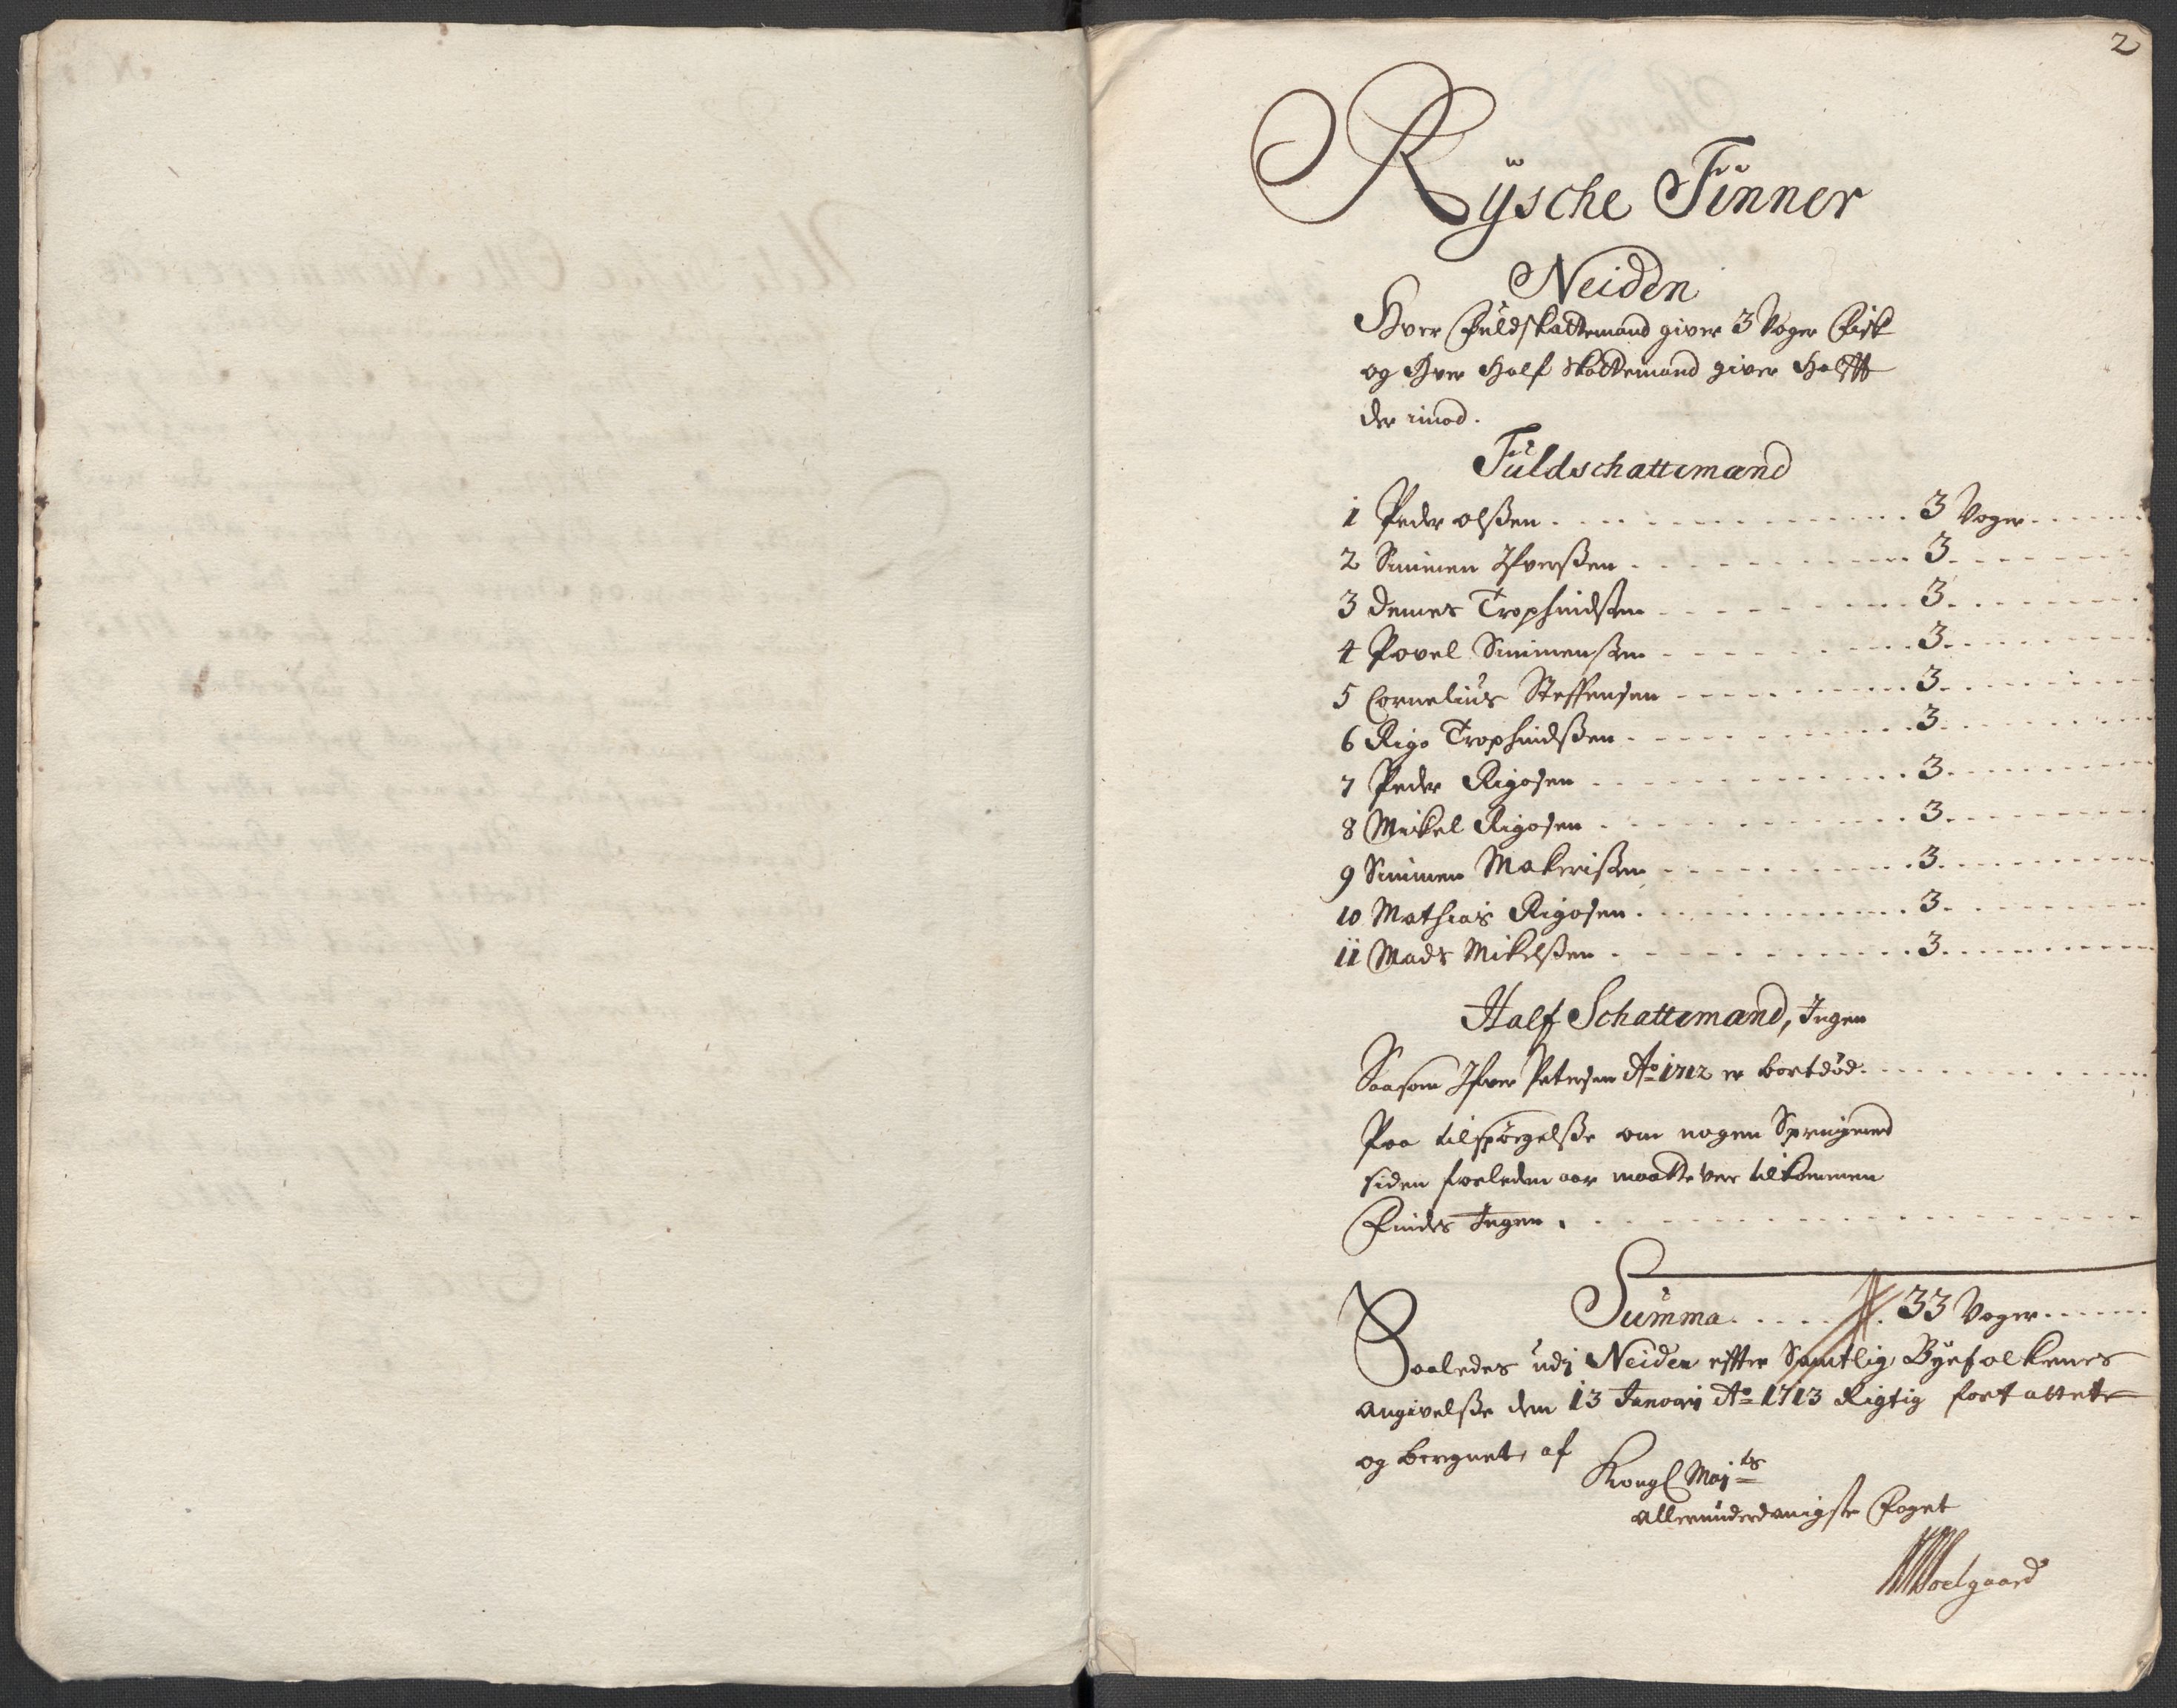 2
Rÿsche Finner
Neiden
Hver Fuldskattemand giver 3 Voger Fisk
og hver Half Skattemand giver halfft
der imod.
Fuldschattemænd
1 Peder olßen . . . 3 Voger . . .
2 Simmen Ifverßen . . . 3 . . .
3 Demes Trophindßen . . . 3 . . .
4 Povel Simmenßen . . . 3 . . .
5 Cornelius Steffensen . . . 3 . . .
6 Rigo Trophindßen . . . 3 . . .
7 Peder Rigosen . . . 3 . . .
8 Mickel Rigosen . . . 3 . . .
9 Simmen Makerißen . . . 3 . . .
10 Mathias Rigosen . . . 3 . . .
11 Mads Mikelßen . . . 3 . . .
Half Schattemænd, Ingen
Saasom Ifver Petersen Ao 1712 er bortdød . . .
Paa tilspørgelße om nogen
siden forleden aar maatte vere tilkommen
Findes Ingen . . .
Summa . . . 33 Voger . . .
Saaledes udj Neiden effter Samtlig Byefolkenes
angivelße den 13 Januarij Ao 1713 Rigtig forfattet
og beregnet, af
Kongl Mayts
allerunderdanigste Foget